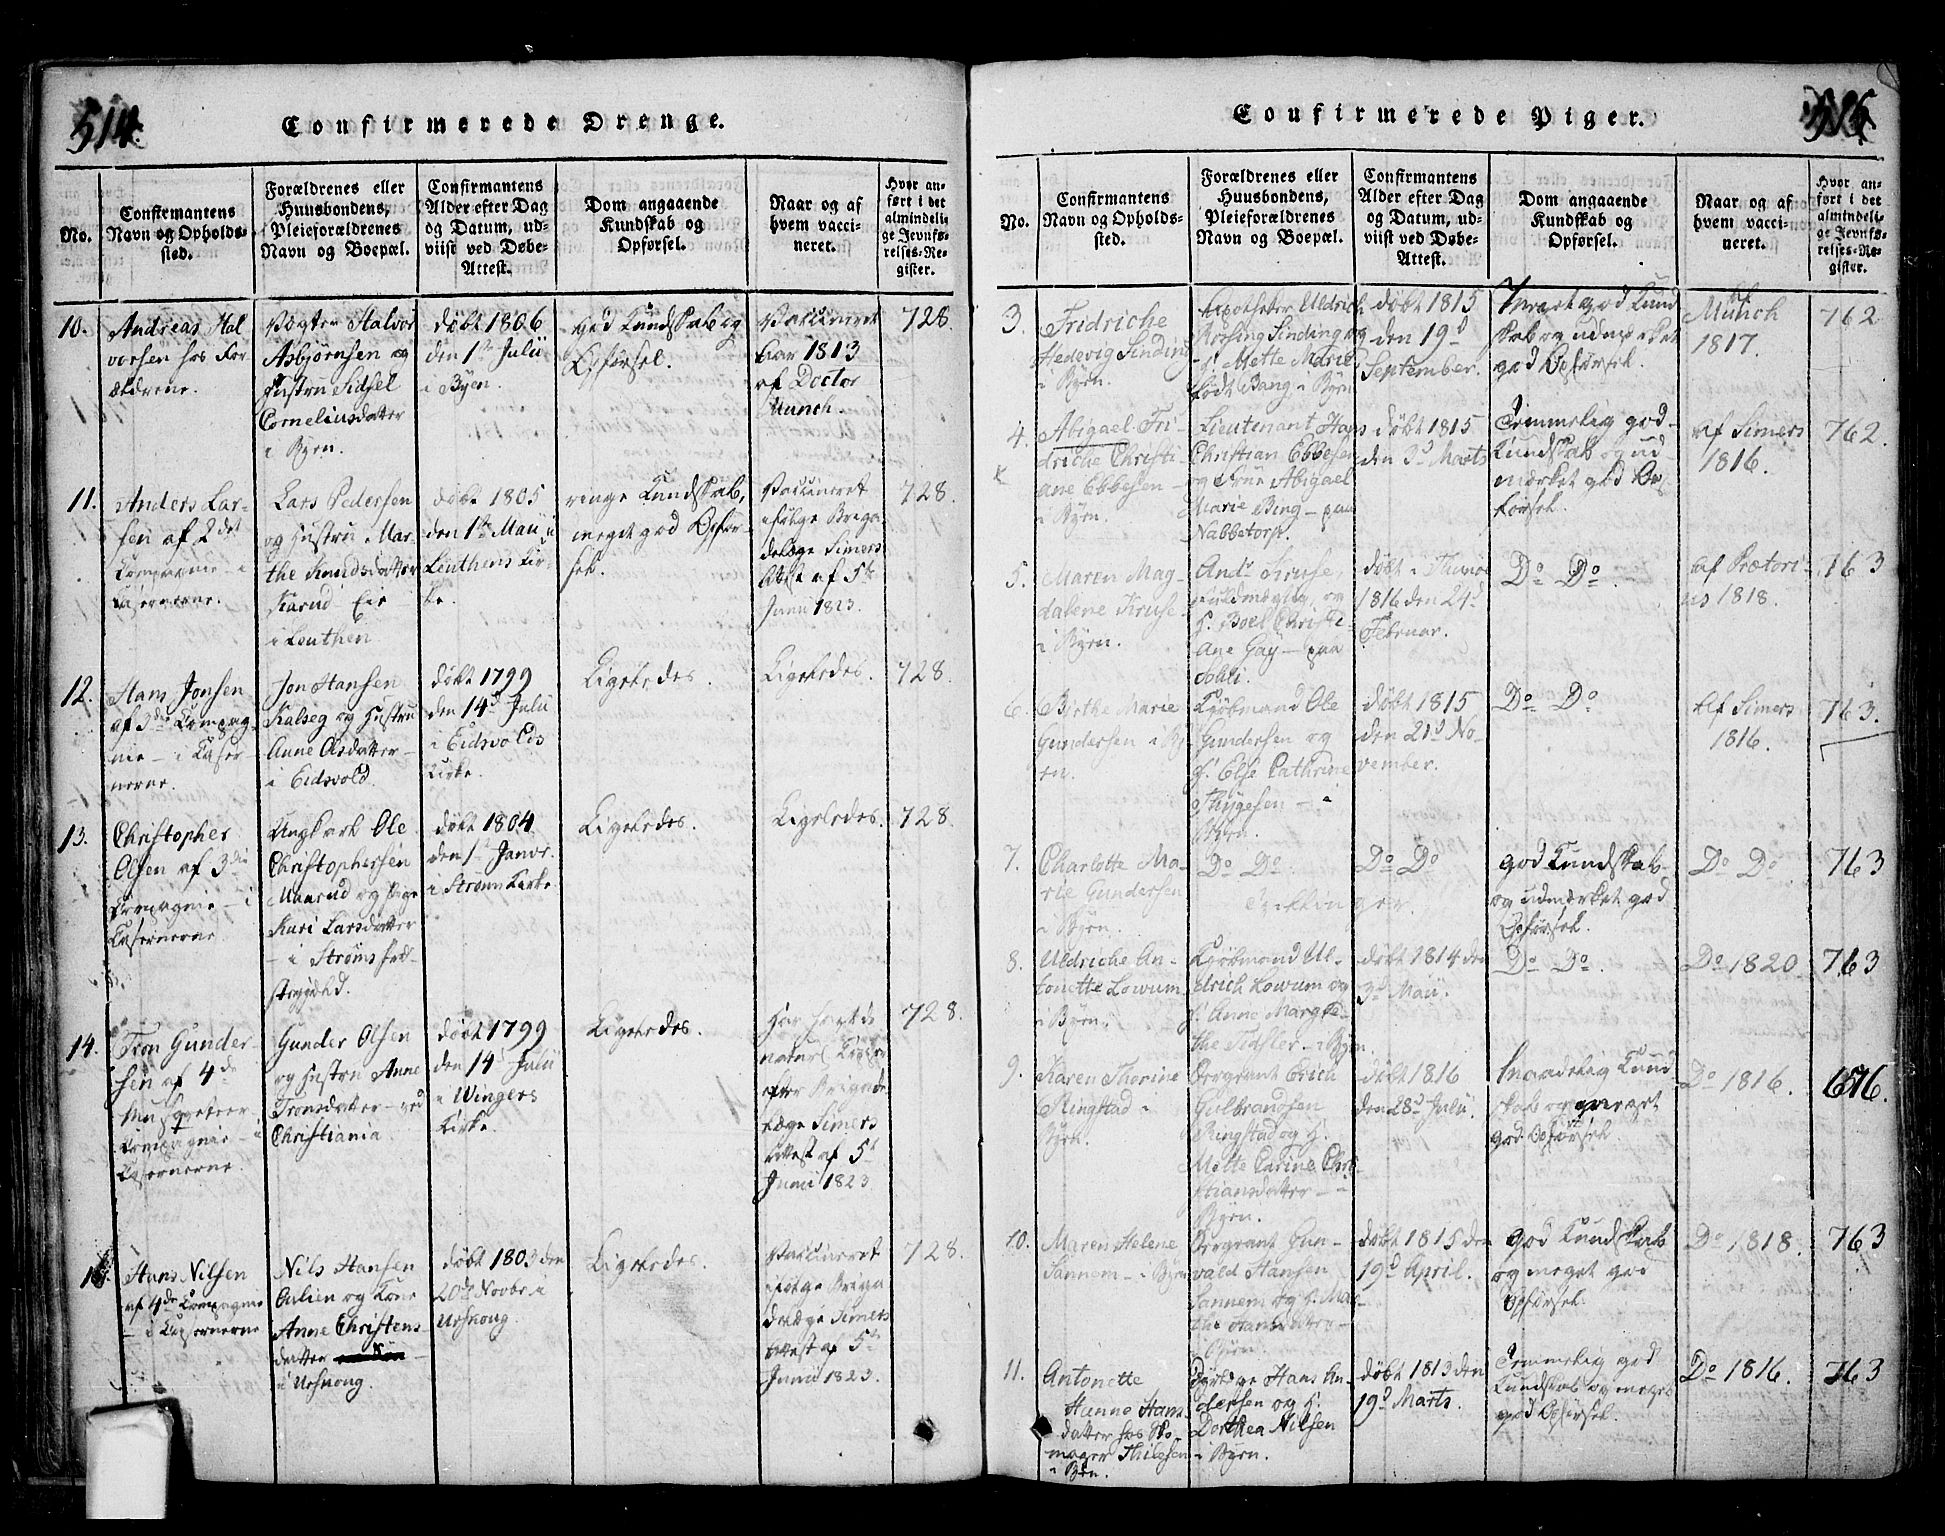 514.
Confirmerede Drenge.
No.
Confirmantens
Navn og Opholds-
sted.
Forældrenes eller
Huusbondens,
Pleieforældrenes
Navn og Boepæl.
Confirmantens
Alder efter Dag
og Datum, ud-
viist ved Døbe-
Attest.
Dom angaaende
Kundskab og
Opførsel.
Naar og af
hvem vacci-
neret.
Hvor an-
ført i det
almindeli-
ge Jevnfø-
relses-Re-
gister.
10.
Andreas Hal
vorsen hos For
ældrene.
Vægter Halvor
Asbjørnsen og
Hustru Sidsel
Corneliusdatter
i Byen.
døbt 1806
den 1ste Julii
i Byen.
god Kundskab og
Opførsel.
Vaccineret
1813
af Doctor
Munch.
728
11.
Anders Lar-
sen af 2det
Compagnie i
Casernerne.
Lars Pedersen
og Hustru Mar-
the Knudsdatter
Karud Eie
i Leuthen
døbt 1805
den 1ste Maii i
Leuthens Kir-
ke.
ringe Kundskab,
meget god Opfør-
sel.
Vaccineret
ifølge Briga
delæge Simers
Attest af 5te
Junii 1823.
728.
12.
Hans Jonsen
af 3die Compag-
nie - i Caser-
nerne.
Jon Hansen
Kalseg og Hustru
Anne Olsdatter -
i Eidsvold.
døbt 1799
den 14de Julii
i Eidsvolds
Kirke.
Ligeledes.
Ligeledes.
728.
13.
Christopher
Olsen af 3die
Compagnie - i
Casernerne.
Ungkarl Ole
Christophersen
Maarud og Pige
Kari Larsdatter
- i Strøms
døbt 1804
den 1ste Janvr.
i Strøm Kirke
Ligeledes.
Ligeledes.
728.
14.
Tron Gunder-
sen af 4de
Musqveteer-
Compagnie - i
Casernerne.
Gunder Olsen
og Hustru Anne
Tronsdatter - ved
Christiania.
døbt 1799
den 14 Julii
i Wingers
Kirke.
Ligeledes.
Har havt de
naturl. Kopper
efter Brigade
læge Simers
Attest af 5te
Junii 1823
728.
15.
Hans Nilsen
af 4de Compagnie
- i Casernerne
Nils Hansen
Aulien og Kone
Anne Christens-
datter
i Urskoug.
døbt 1803 den
20de Novbr i
Urskoug.
Ligeledes.
Vaccineret
ifølge Briga
delæge Simers
Attest af 5te
Junii 1823.
728.
515.
Confirmerede Piger.
No.
Confirmantens
Navn og Opholds-
sted.
Forældrenes eller
Huusbondens,
Pleieforældrenes
Navn og Boepæl.
Confirmantens
Alder efter Dag
og Datum, ud-
viist ved Døbe-
Attest.
Dom angaaende
Kundskab og
Opførsel.
Naar og af
hvem vacci-
neret.
Hvor an-
ført i det
almindeli-
ge Jevnfø-
relses-Re-
gister.
3.
Fridriche
Hedevig Sinding
i Byen.
Apotheker Uldrich
Rosing Sinding og
H. Mette Marie
født Bang i Byen
døbt 1815
den 19d
September.
god Kund
skab og udmærket
god Opførsel.
af
Munch
1817.
762
4.
Abigael Fri-
driche Christi-
ane Ebbesen -
i Byen.
Lieutenant Hans
Christian Ebbesen
og Kone Abigael
Marie Bing - paa
Nabbetorp.
døbt 1815
den 3d Marts
Temmelig god
Kundskab og ud-
mærket god Op-
førsel.
af Simers
1816.
762.
5.
Maren Mag-
dalene Kruse
i Byen.
Andr. Kruse,
Fuldmægtig og
H. Boel Christi-
ane Gay - paa
døbt i
1816 den 24d
Februar.
Do Do.
af Prætori-
us 1818.
763
6.
Byrthe Marie
Gundersen i By-
en.
Kjøbmand Ole
Gundersen og
H. Else Cathrine
Thygesen - i
Byen.
døbt 1815
den 21d No-
vember.
Do Do
af Simers
1816.
763.
7.
Charlotte Ma-
rie Gundersen
i Byen.
Do Do.
Do Do
Tvillinger.
god Kundskab
og udmærket god
Opførsel.
Do Do.
763
8.
Uldriche An-
tonette Lowum
i Byen.
Kjøbmand Ul-
drich Lowum og
H. Anne Margre-
the Fidsler - i Byen.
døbt 1814 den
3d Maii.
Do Do.
Do 1820.
763
9.
Karen Thorine
Ringstad i
Byen.
Sergeant Erich
Gulbrandsen
Ringstad og H.
Mette Carine Chri-
stiansdatter - i
Byen.
døbt 1816
den 28d Julii.
Maadelig Kund
skab og meget
god Opførsel.
Do 1816.
676.
10.
Maren Helene
Sannem - i Byen
Sergeant Gun-
vald Hansen
Sannem og H. Mar-
the Hansdatter -
i Byen.
døbt 1815 den
19d April.
god Kundskab
og meget god
Opførsel.
Do 1818.
763
11.
Antonette
Hanne Hans
datter hos Sko-
mager Thilesen
i Byen.
Hans An-
dersen og H.
Dorthea Nilsen
i Byen.
døbt 1813 den
19d Marts.
Temmelig god
Kundskab og meget
god Opførsel.
Do 1816.
763